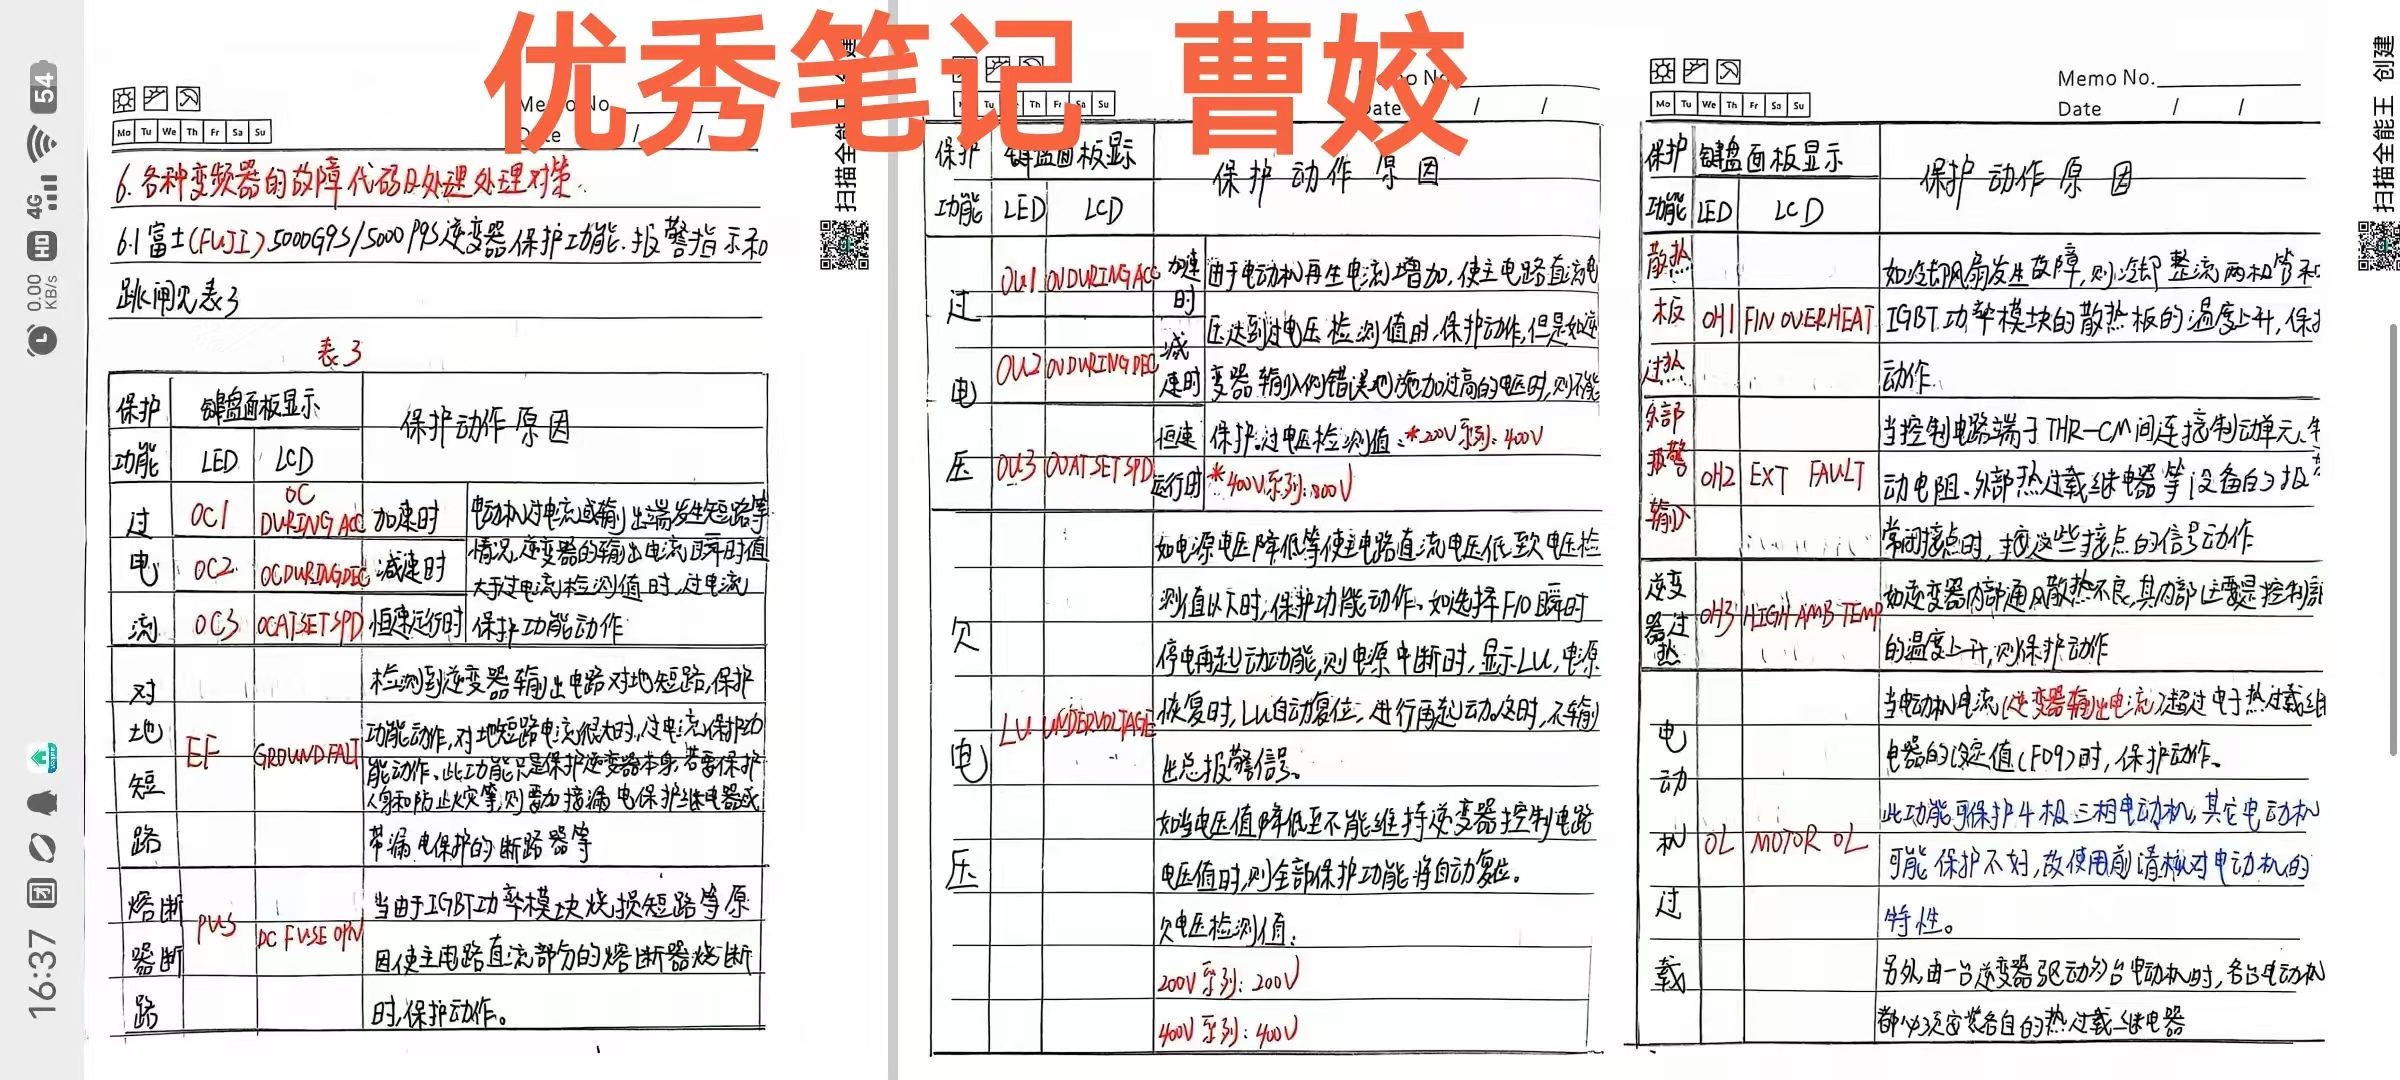 优秀笔记 曹姣
16:37
0.00 KB/s
HD
4G
54
Memo No.
Date / /
Mo Tu We Th Fr Sa Su
6.各种变频器的故障代码及处理处理对策.
6.1富士(FUJI)5000G9S/5000P9S逆变器保护功能.报警指示和
跳闸见表3
表3
保护功能 键盘面板显示 保护动作原因
LED LCD
过电流
OC1 OC DURING ACC 加速时
OC2 OC DURING DEC 减速时
OC3 OC AT SET SPD 恒速运行时
电动机过电流或输出端发生短路等
情况,逆变器的输出电流瞬时值
大于过电流检测值时,过电流
保护功能动作
对地短路 EF GROUND FALT
检测到逆变器输出电路对地短路,保护
功能动作,对地短路电流很大时,过电流保护功
能动作。此功能只是保护逆变器本身,若要保护
人身和防止火灾等,则要加接漏电保护继电器或
带漏电保护的断路器等
熔断器断路 PUS DC FUSE OPN
当由于IGBT功率模块烧损短路等原
因使主电路直流部分的熔断器烧断
时,保护动作。
扫描全能王 创建
Memo No.
Date / /
Mo Tu We Th Fr Sa Su
保护功能 键盘面板显示 保护动作原因
LED LCD
过电压
OU1 OV DURING ACC 加速时
OU2 OV DURING DEC 减速时
OU3 OV AT SET SPD 恒速运行时
由于电动机再生电流增加,使主电路直流电
压达到过电压检测值时,保护动作,但是如逆
变器输入侧错误地施加过高的电压时,则不能
保护.过电压检测值:*200V系列:400V
*400V系列:800V
欠电压 LU UNDERVOLTAGE
如电源电压降低等使主电路直流电压低至欠电压检
测值以下时,保护功能动作。如选择F10瞬时
停电再起动功能,则电源中断时,显示LU,电源
恢复时,LU自动复位,进行再起动。这时,不输
出总报警信号。
如当电压值降低至不能维持逆变器控制电路
电压值时,则全部保护功能将自动复位。
欠电压检测值:
200V系列:200V
400V系列:400V
Memo No.
Date / /
Mo Tu We Th Fr Sa Su
保护功能 键盘面板显示 保护动作原因
LED LCD
散热板过热 OH1 FIN OVERHEAT
如冷却风扇发生故障,则冷却整流两极管和
IGBT功率模块的散热板的温度上升,保护
动作.
外部报警输入 OH2 EXT FAULT
当控制电路端子THR-CM间连接制动单元、制
动电阻、外部热过载继电器等设备的报警
常闭接点时,按这些接点的信号动作
逆变器过热 OH3 HIGH AMB TEMP
如逆变器内部通风散热不良,其内部主要是控制
的温度上升,则保护动作
电动机过载 OL MOTOR OL
当电动机电流(逆变器输出电流)超过电子热过载继
电器的设定值(F09)时,保护动作。
此功能可保护4极三相电动机,其它电动机
可能保护不好,故使用前请核对电动机的
特性。
另外,由一台逆变器驱动多台电动机时,各台电动机
都必须安装各自的热过载继电器
扫描全能王 创建